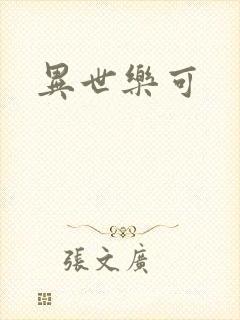 異世樂可
張文廣